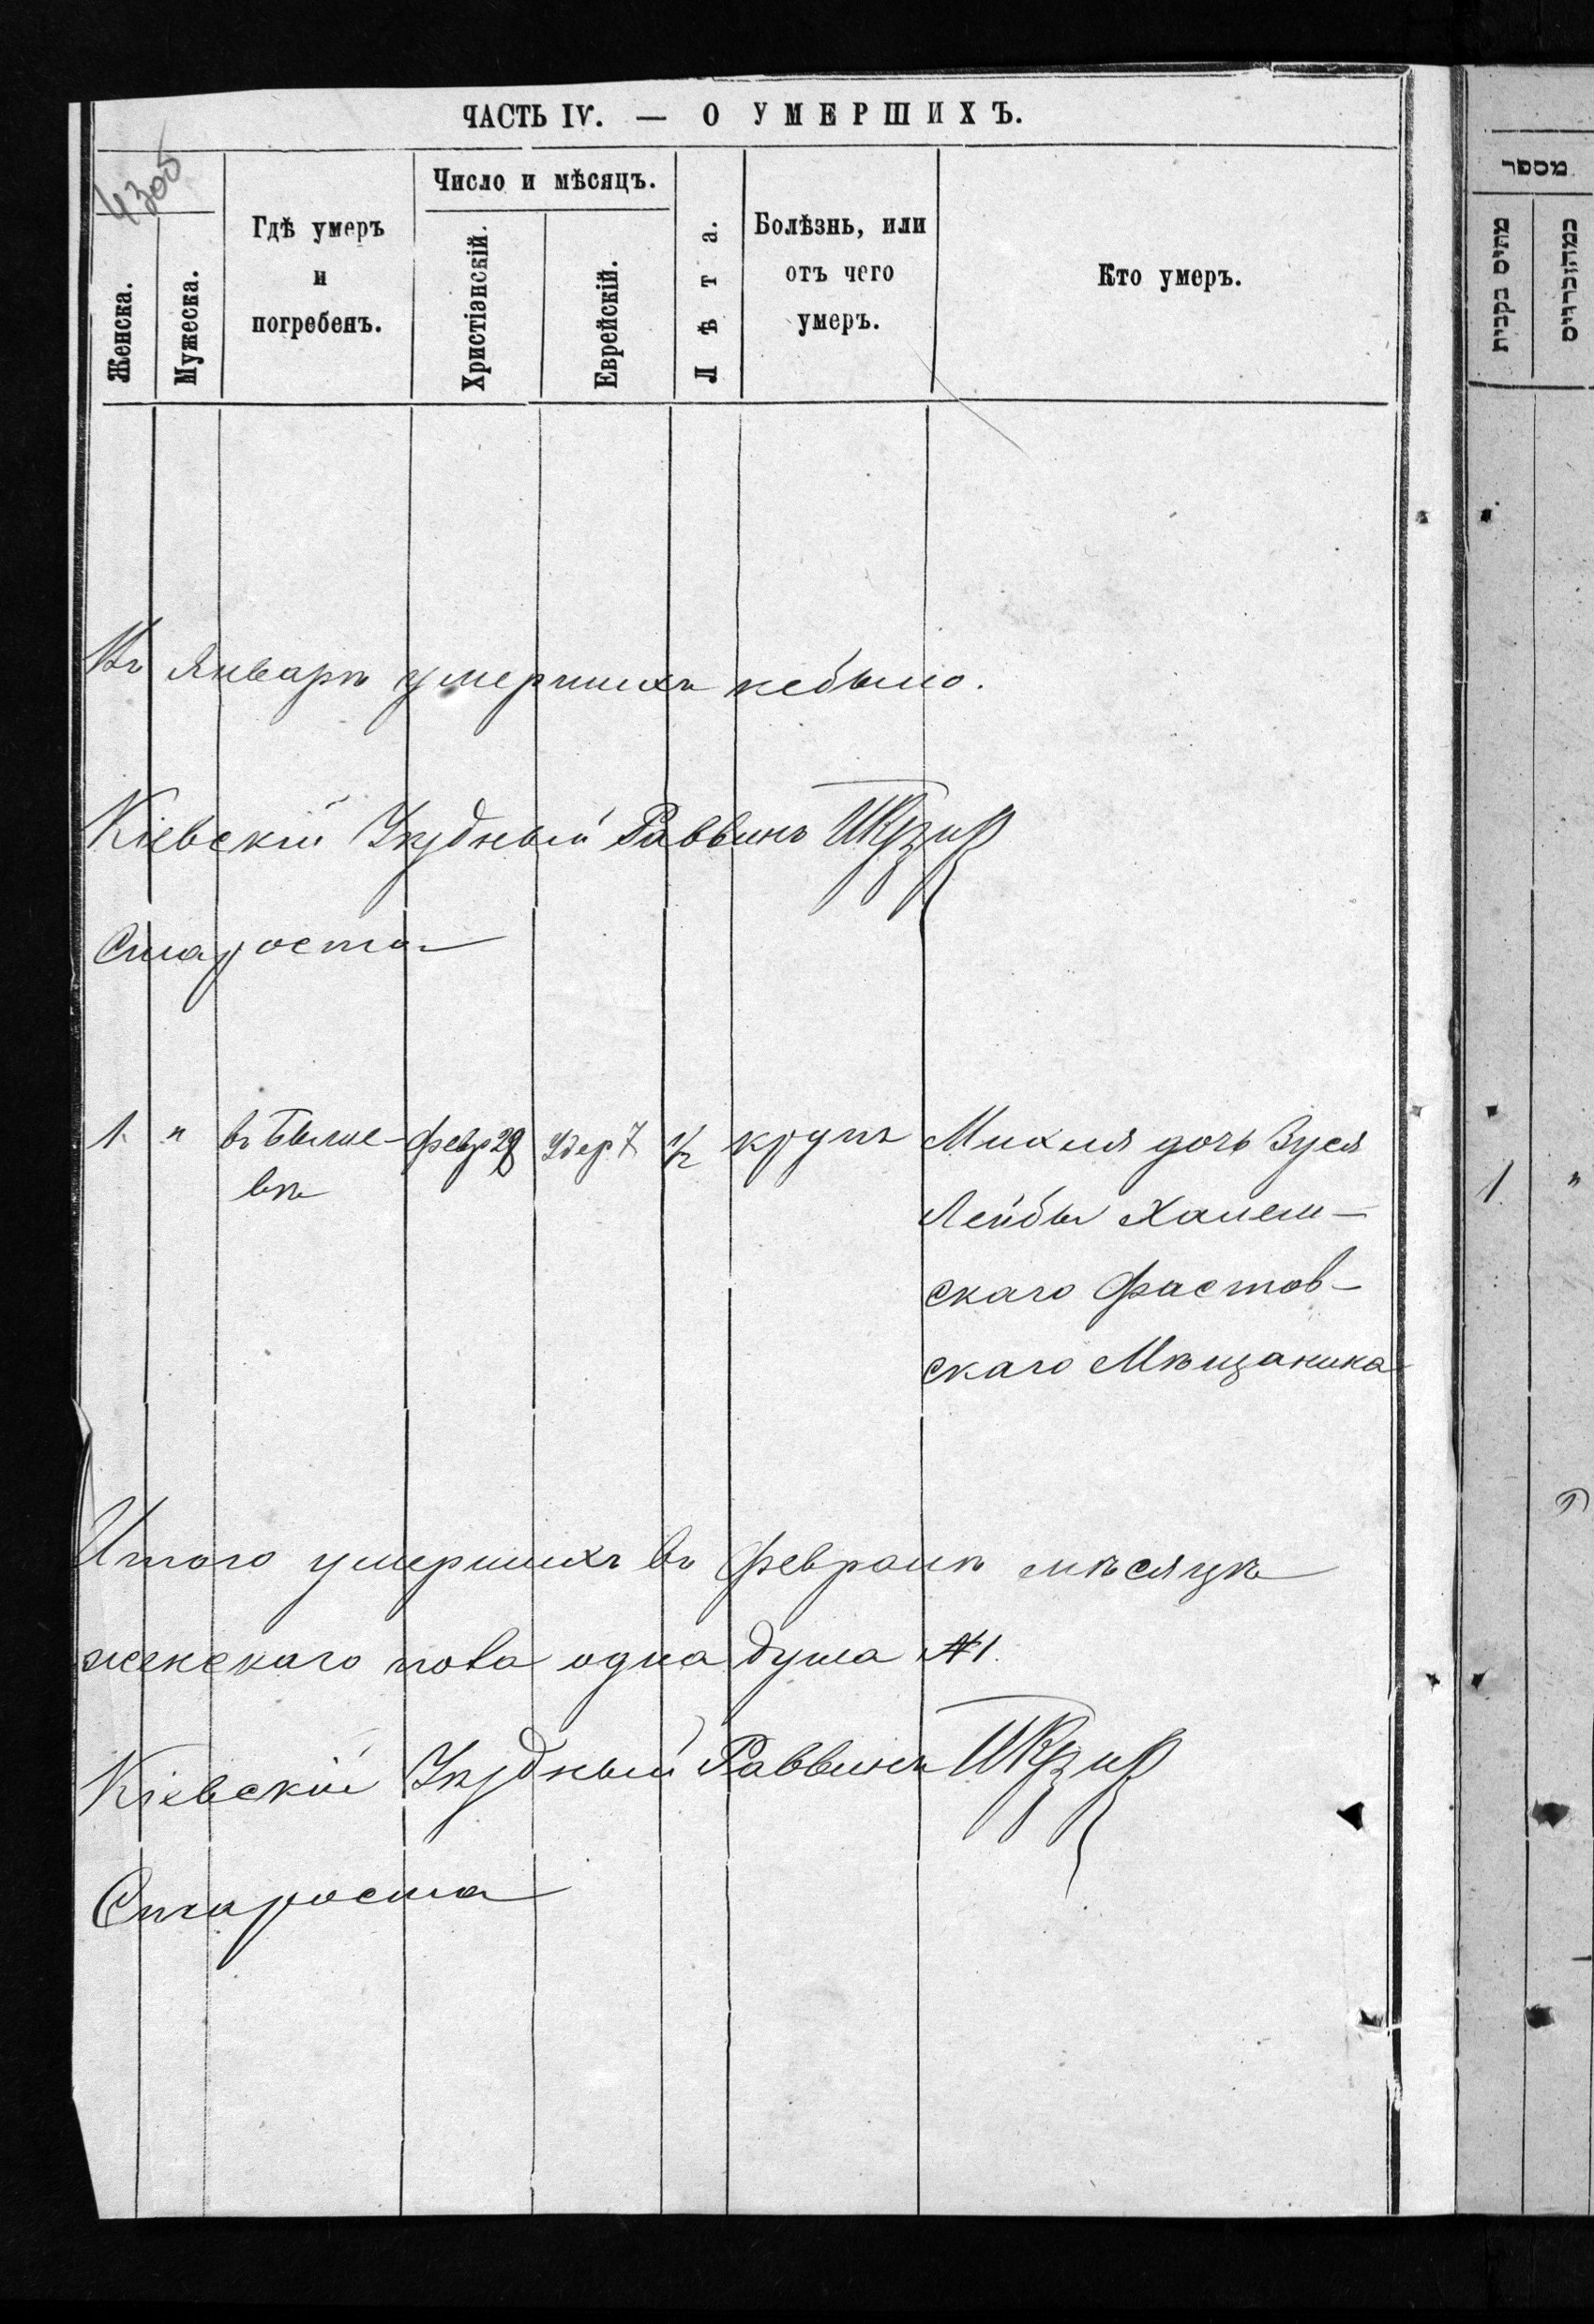 ЧАСТЬ IV. — О УМЕРШИХЪ.
4305
Женска.
Мужеска.
Гдѣ умеръ
и
погребенъ.
Число и мѣсяцъ.
Христіанскій.
Еврейскій.
Лѣта.
Болѣзнь, или
отъ чего
умеръ.
Кто умеръ.
Въ Январѣ умершихъ небыло.
Кіевскій Уѣздный Раввинъ
Староста
1. " въ февр 29 7 1/2 крупъ Михля дочь Зуся
вкѣ Лейбы
скаго Фастов-
скаго Мѣщанина
Итого умершихъ въ Февралѣ мѣсяцѣ
женскаго пола одна душа №1.
Кіевскій Уѣздный Раввинъ
Староста
מספר
מהיס בקבית
כמהזכריים
1. "